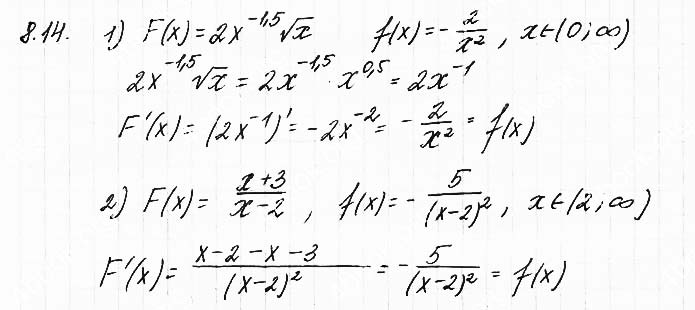 8.14. 1) F(x) = 2x^{-1,5}√x   f(x) = -\frac{2}{x^2}, x∈(0; ∞)
2x^{-1,5}√x = 2x^{-1,5} · x^{0,5} = 2x^{-1}
F'(x) = (2x^{-1})' = -2x^{-2} = -\frac{2}{x^2} = f(x)
2) F(x) = \frac{x+3}{x-2}, f(x) = -\frac{5}{(x-2)^2}, x∈(2; ∞)
F'(x) = \frac{x-2-x-3}{(x-2)^2} = -\frac{5}{(x-2)^2} = f(x)